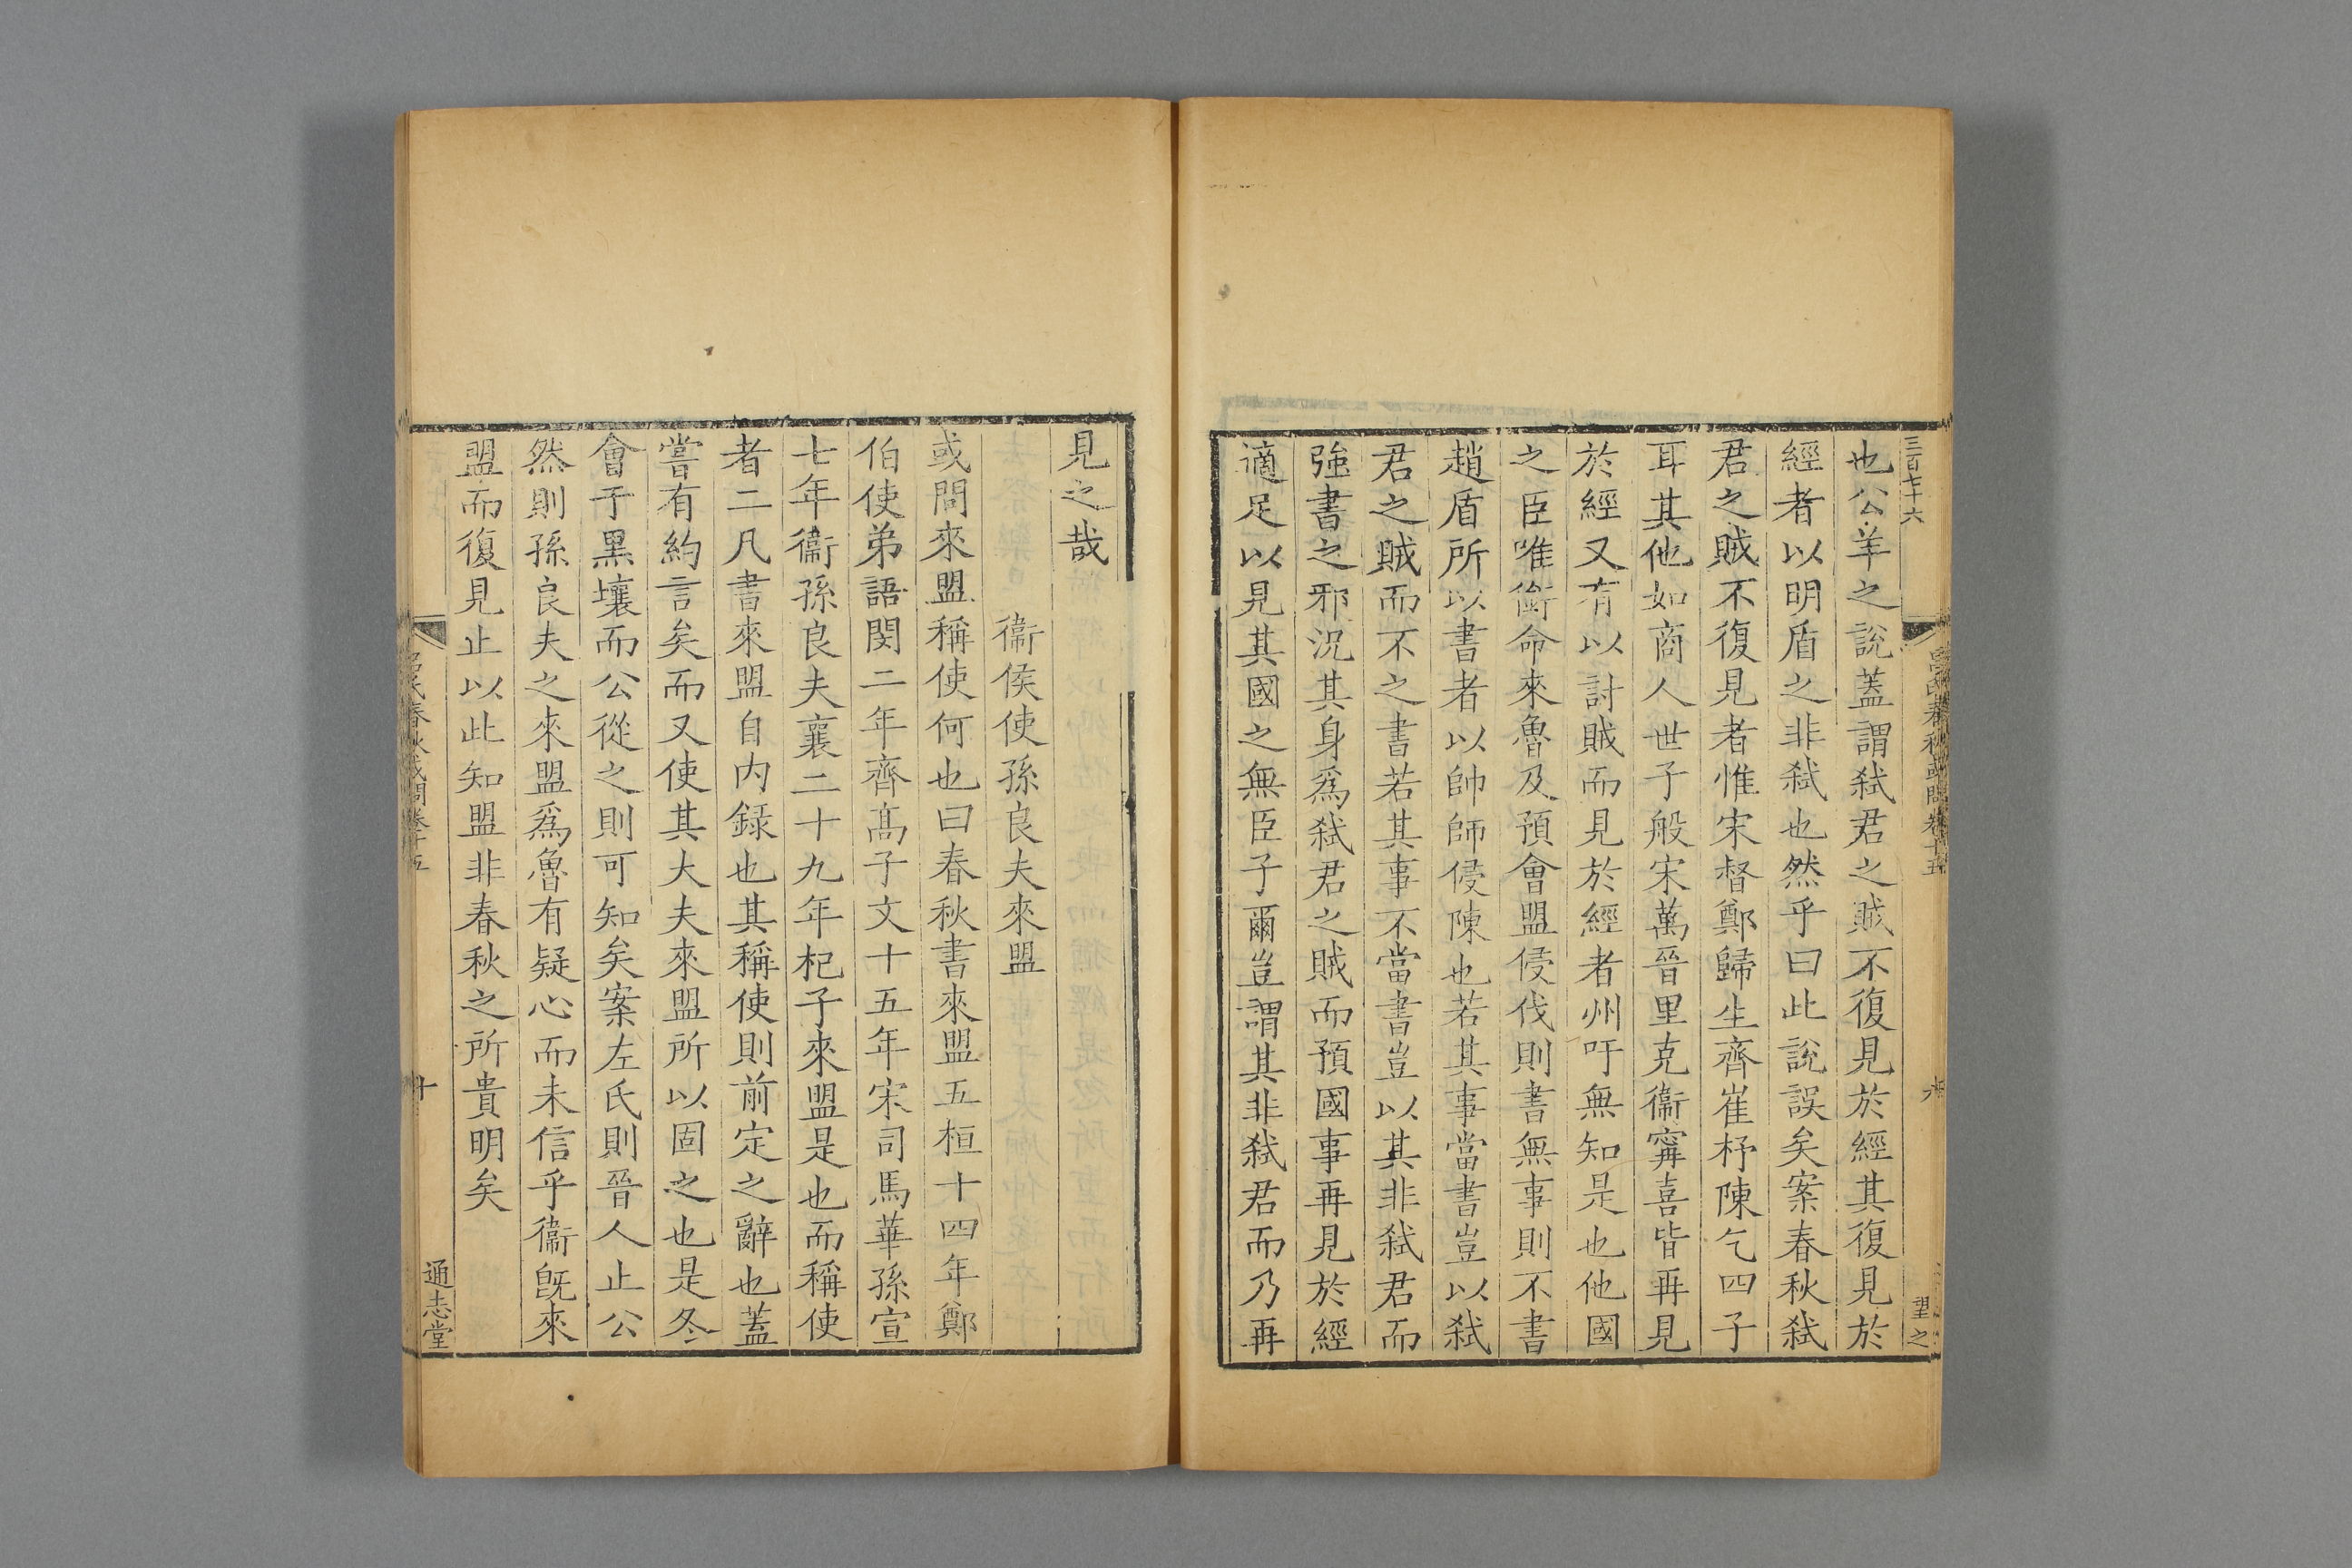 三百七十六
也公羊之說蓋謂弑君之賊不復見於經其復見於
經者以明盾之非弑也然乎曰此說誤矣案春秋弑
君之賊不復見者惟宋督鄭歸生齊崔杼陳乞四子
耳其他如商人世子般宋萬晉里克衞甯喜皆再見
於經又有以討賊而見於經者州吁無知是也他國
之臣唯銜命來魯及預會盟侵伐則書無事則不書
趙盾所以書者以帥師侵陳也若其事當書豈以弑
君之賊而不之書若其事不當書豈以其非弑君而
強書之邪况其身爲弑君之賊而預國事再見於經
適足以見其國之無臣子爾豈謂其非弑君而乃再
望之
見之哉
衞侯使孫良夫來盟
或問來盟稱使何也曰春秋書來盟五桓十四年鄭
伯使弟語閔二年齊高子文十五年宋司馬華孫宣
七年衞孫良夫襄二十九年杞子來盟是也而稱使
者二凡書來盟自内録也其稱使則前定之辭也蓋
嘗有約言矣而又使其大夫來盟所以固之也是冬
會于黑壤而公從之則可知矣案左氏則晉人止公
然則孫良夫之來盟爲魯有疑心而未信乎衞旣來
盟而復見止以此知盟非春秋之所貴明矣
呂氏春秋或問卷十五
十
通志堂